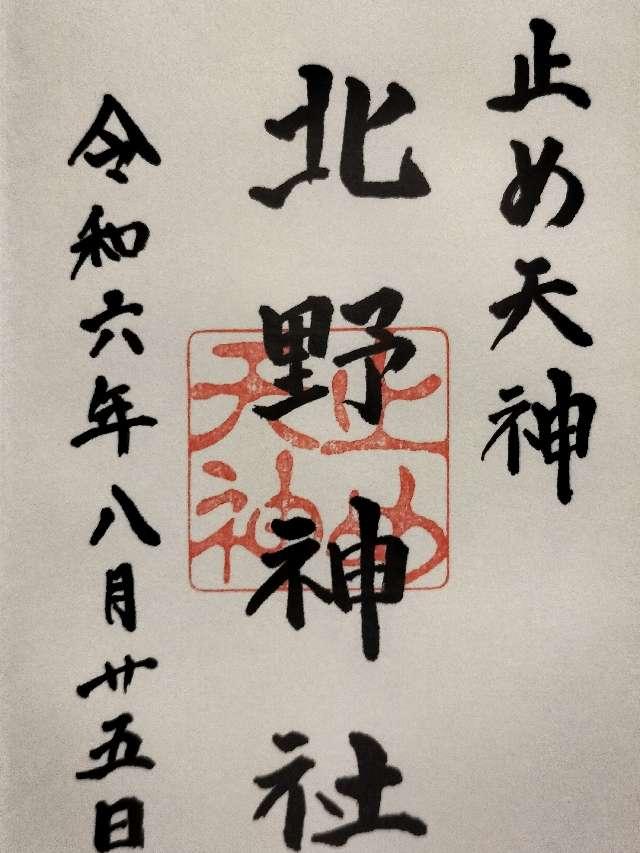 止め天神
北野神社
止め天神
令和六年八月廿五日